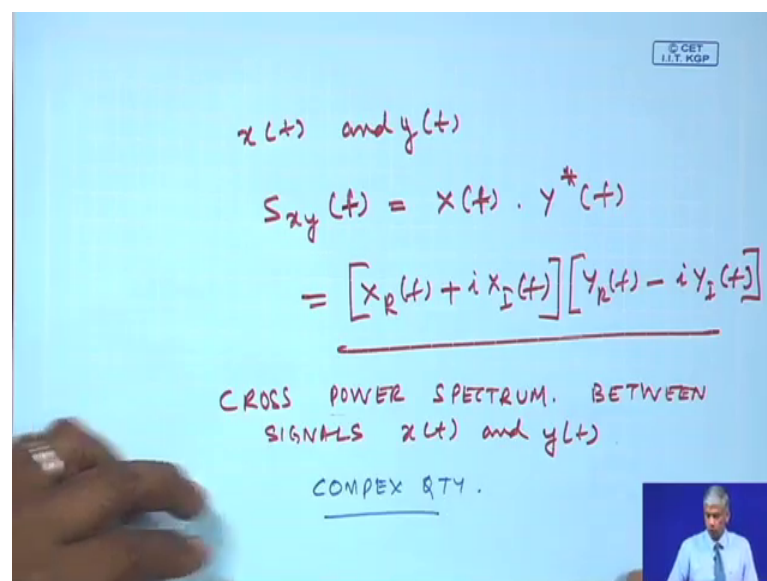 © CET
I.I.T. KGP
x(t) and y(t)
Sxy(f) = X(f) . Y*(f)
= [XR(f) + i XI(f)] [YR(f) - i YI(f)]
CROSS POWER SPECTRUM. BETWEEN
SIGNALS x(t) and y(t)
COMPEX QTY.